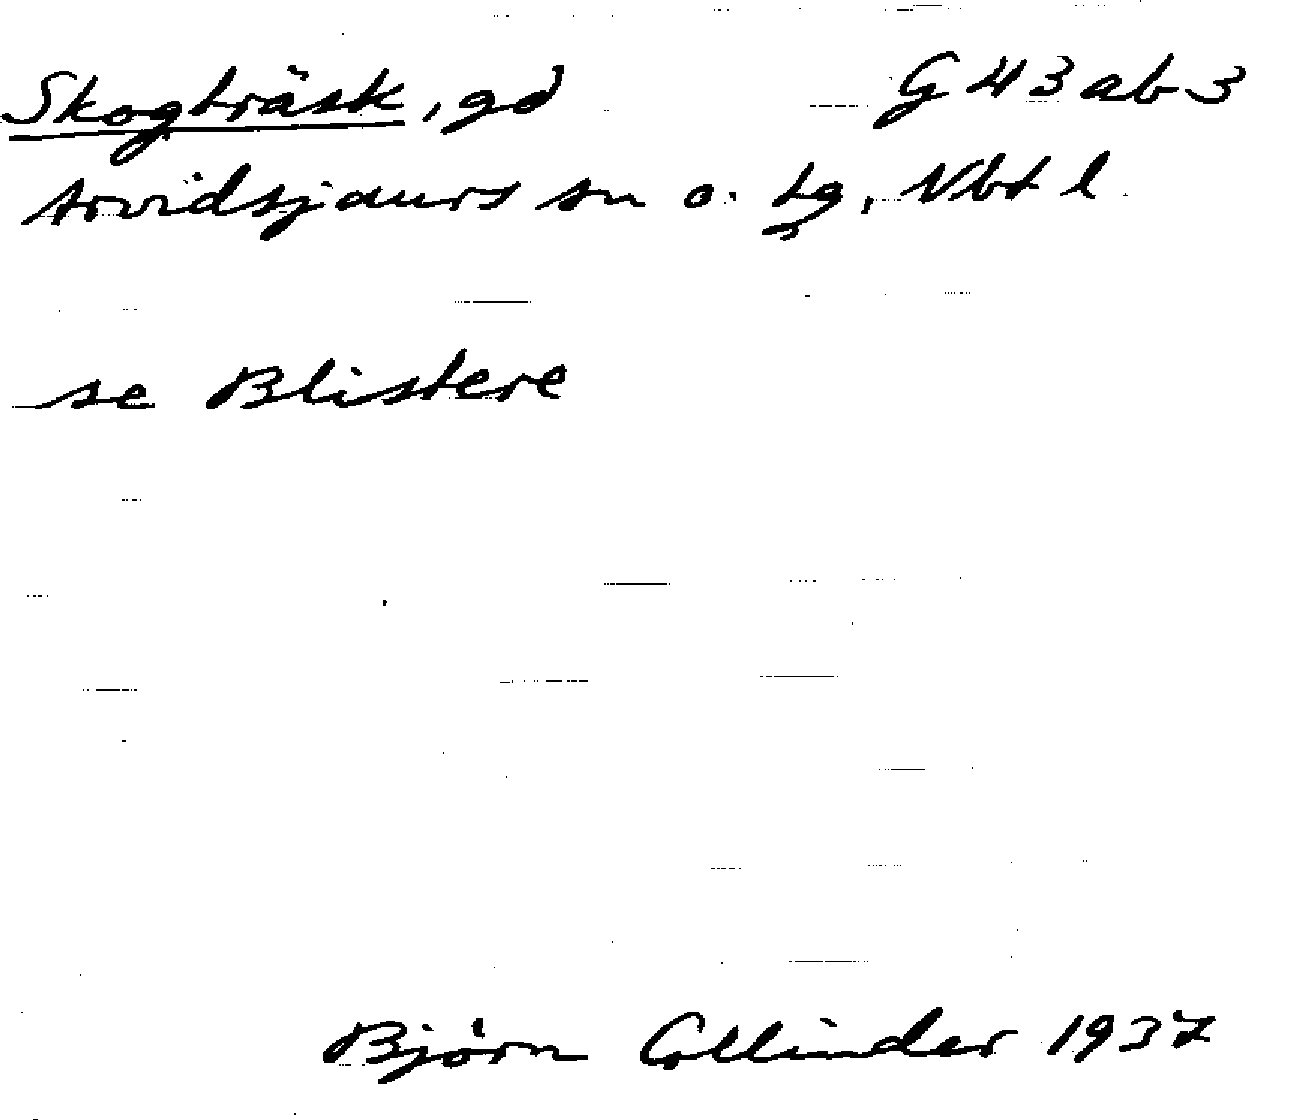 Skogträsk, gd G 43 ab 3
Arvidsjaurs sn o. tg, Vbt l
se Blistere
Björn Collinder 1937